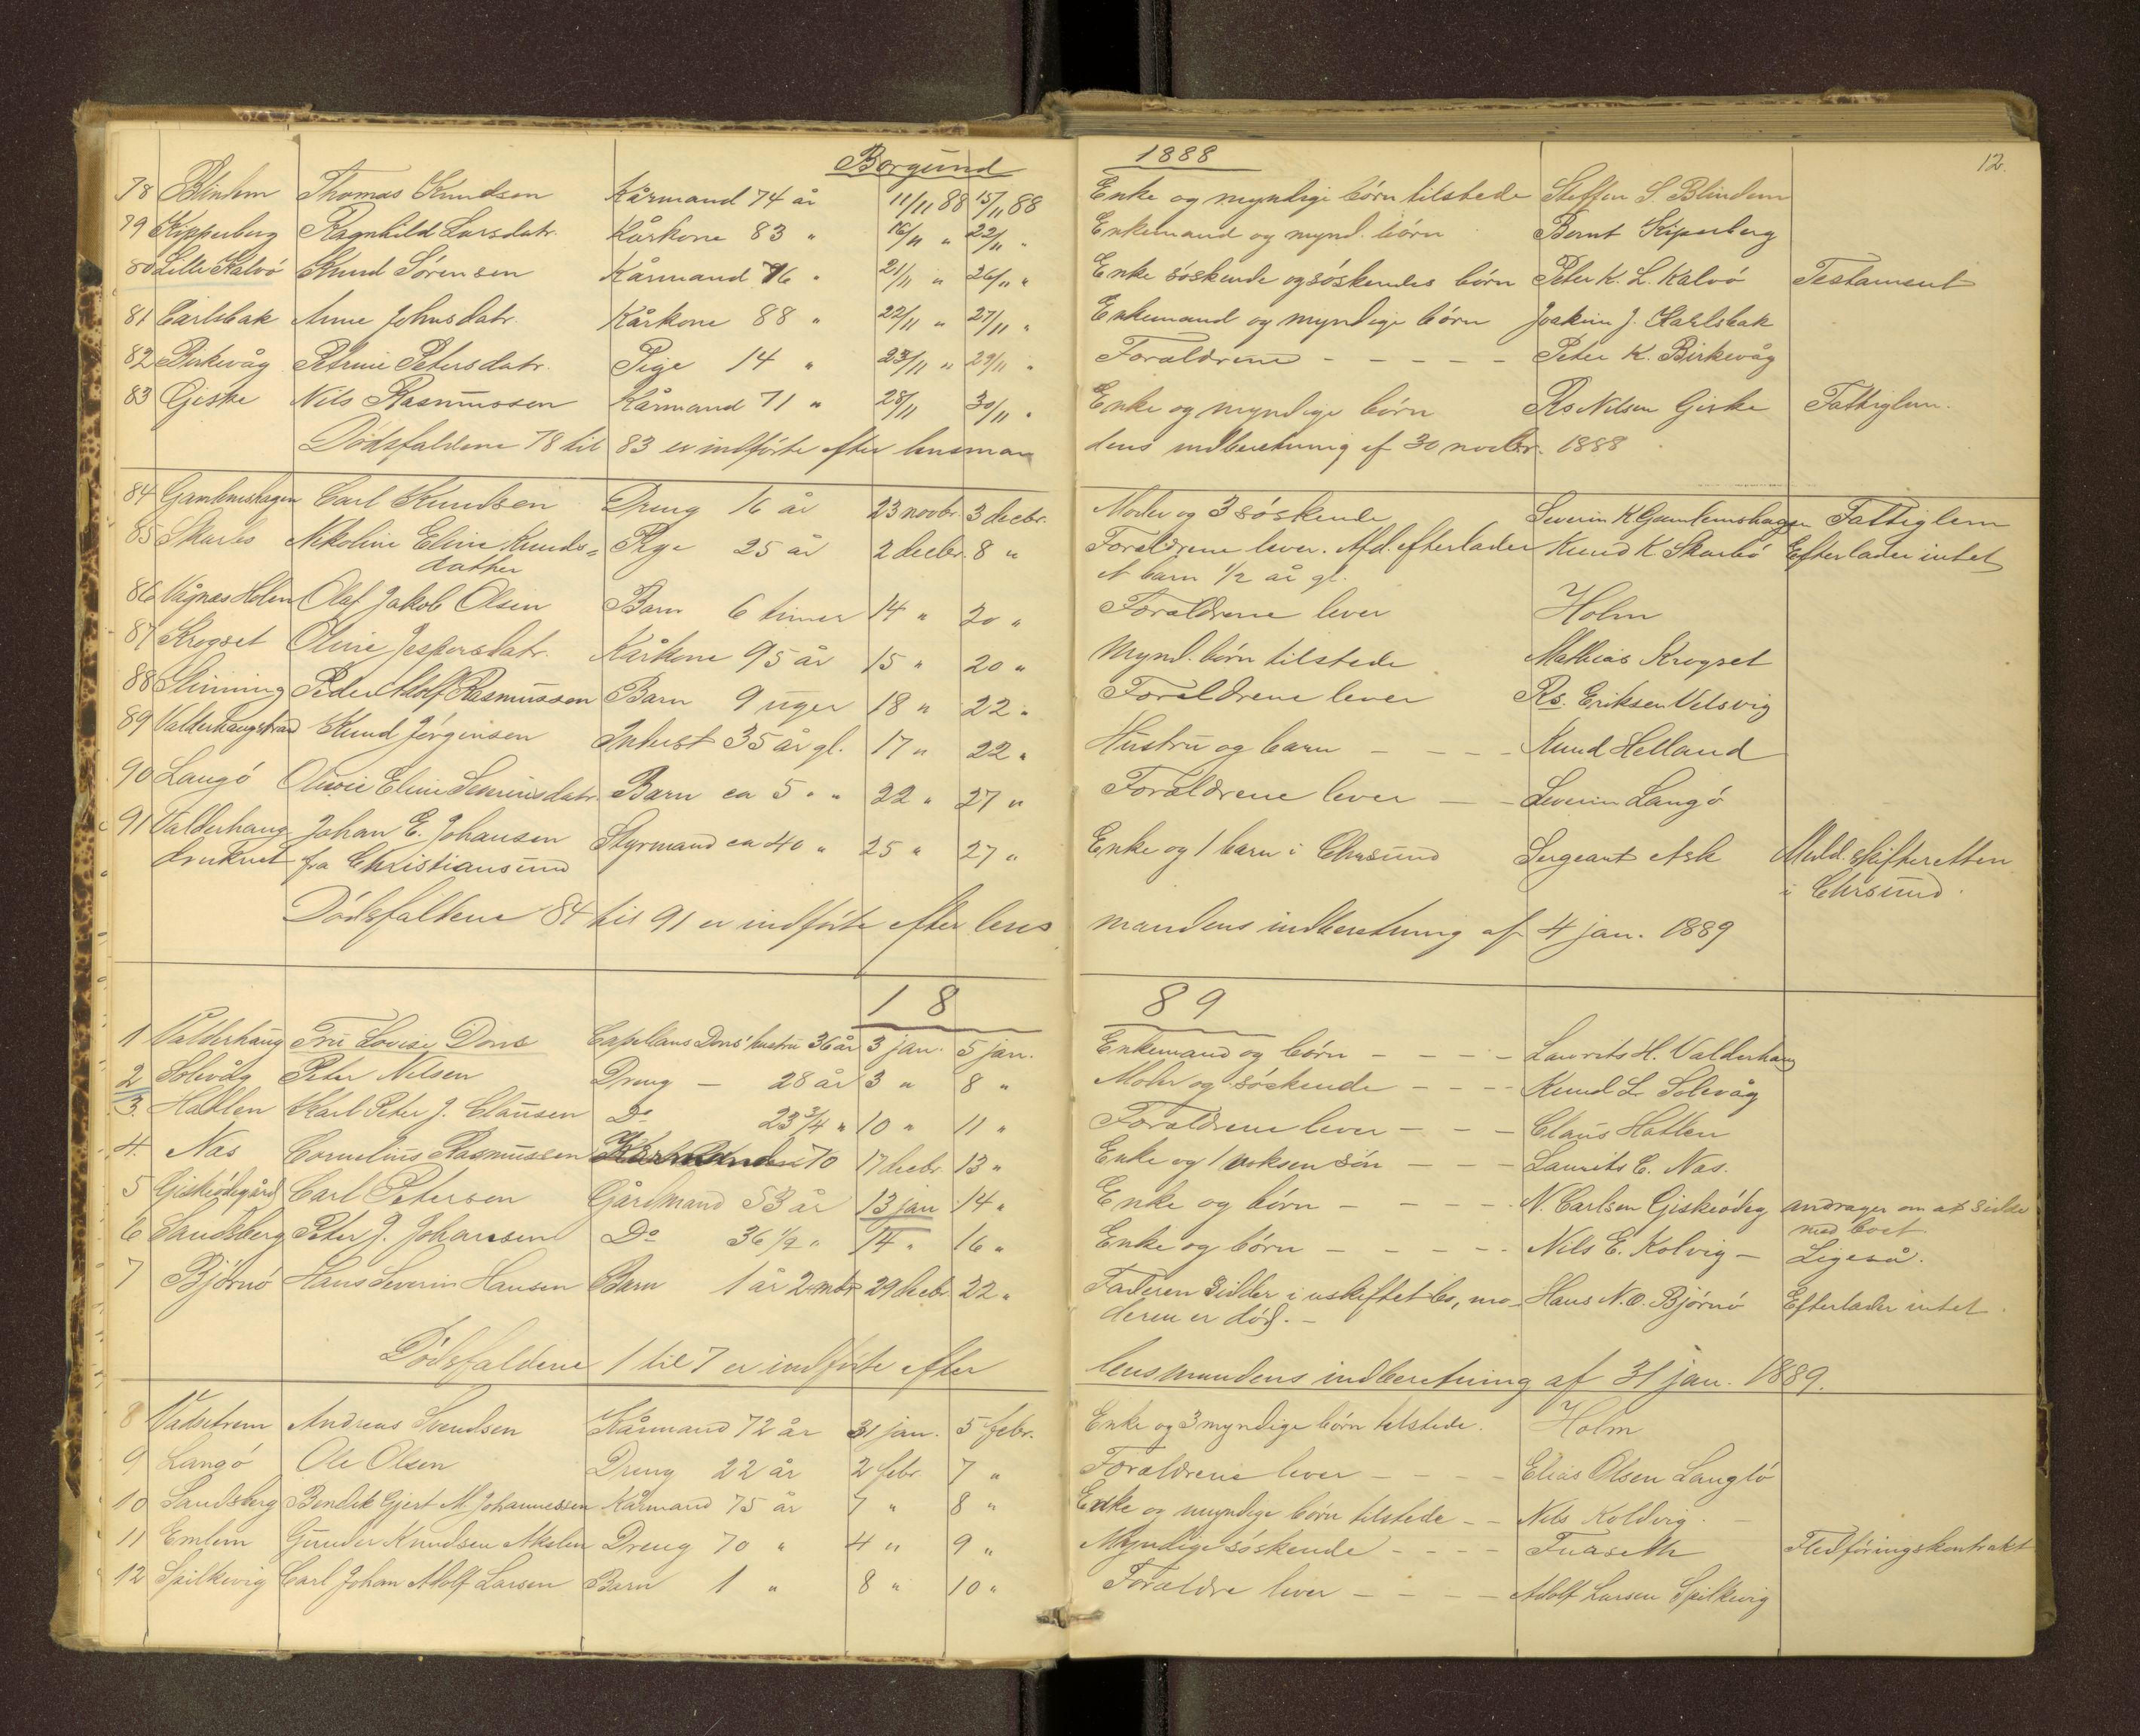 Borgund 1888 12.
78 Blinhm Thomas Knudsen Kårmand 74 år 11/11 88 15/11 88 Enke og myndige børn tilstede Steffen S Blindem
79 Kipperberg Ragnhild Larsdatr. Kårkone 83 " 16/11 " 22/11 " Enkemand og mynd. børn Bernt Kiperberg
80 Lille Kalvö Knud Sörensen Kårmand 76 " 21/11 " 26/11 " Enke söskende og söskendes börn Peter K. L. Kalvö Testament
81 Carlsbak Anne Johnsdatr. Kårkone 88 " 22/11 " 27/11 " Enkemand og myndige börn Joakim J. Karlsbak
82 Birkevåg Petrine Petersdatr. Pige 14 " 23/11 " 29/11 " Forældrene - - - - - Peter K. Birkevåg
83 Giske Nils Rasmussen Kårmand 71 " 28/11 30/11 " Enke og myndige börn Rs Nilsen Giske Fattiglem.
Dödsfaldene 78 til 83 er indförte efter lensmandens indberetning af 30 novbr. 1888
84 Gamlemshagen Carl Knudsen Dreng 16 år 23 novbr. 3 decbr. Moder og 3 söskende Severin K Gamlemshagen Fattiglem
85 Skarbö Nikoline Eline Knuds= Pige 25 år 2 decbr. 8 " Forældrene lever. Afd. efterlader Knud K Skarbö Efterlader intet
datter et barn 1/2 år gl.
86 Vågnæs Holen Olaf Jakob Olsen Barn 6 timer 14 " 20 " Forældrene lever Holm
87 Krogset Oline Jespersdatr. Kårkone 95 år 15 " 20 " Mynd. börn tilstede Mathias Krogset
88 Slinning Peder Adolf Rasmussen Barn 9 uger 18 " 22 " Forældrene lever Rs. Eriksen Velsvig
89 Valderhaugstrand Knud Jörgensen Inderst 35 år gl. 17 " 22 " Hustru og barn - - - Knud Helland
90 Langö Olivie Eline Severinsdatr. Barn ca 5 " " 22 " 27 " Forældrene lever - - Severin Langö
91 Valderhaug Johan E. Johansen Styrmand ca 40 " 25 " 27 " Enke og 1 barn i Chrsund Sergeant Ask Medd. skifteretten
druknet fra Christiansund i Chrsund.
Dödsfaldene 84 til 91 er indförte efter lensmandens indberetning af 4 jan. 1889
1889
1 Valderhaug Fru Lovise Dons Capellans Dons' hustru 36 år 3 jan. 5 jan. Enkemand og börn - - - - Laurits H. Valderhaug
2 Solevåg Peter Nilsen Dreng - 28 år 3 " 8 " Moder og söskende - - - - Knud L. Solevåg
3. Hatlen Karl Peter J. Clausen Do 23 3/4 " 10 " 11 " Forældrene lever - - - Claus Hatlen
4. Næs Cornelius Rasmussen 70 17 decbr. 13 " Enke og 1 voksen sön - - - Laurits C. Næs.
5 Giskeödegård Carl Petersen Gårdmand 53 år 13 jan 14 " Enke og börn - - - - - N. Carlsen Giskeödeg andrager om at sidde
med boet
6 Sandsberg Peter J. Johansen Do 36 1/2 " 14 " 16 " Enke og börn - - - - - Nils E. Kolvig - Ligeså.
7 Björnö Hans Severin Hansen Barn 1 år 2 mdr 29 decbr 22 " Faderen sidder i uskiftet bo, mo- Hans N. O. Björnö Efterlader intet.
deren er död. -
Dödsfaldene 1 til 7 er indförte efter lensmandens indberetning af 31 jan. 1889.
8 Vadstrem Andreas Svendsen Kårmand 72 år 31 jan. 5 febr. Enke og 3 myndige börn tilstede. Holm
9 Langö Ole Olsen Dreng 22 år 2 febr. 7 " Forældrene lever - - - - Elias Olsen Langlö
10 Sandsberg Bendik Gjert M. Johannessen Kårmand 75 år 7 " 8 " Enke og myndige börn tilstede - - Nils Koldvig. -
11 Emlem Gunder Knudsen Dreng 70 " 4 " 9 " Myndige söskende - - - - Fuaseth Fledföringskontrakt
12 Spilkevig Carl Johan Adolf Larsen Barn 1 " 8 " 10 " Forældre lever - - - - Adolf Larsen Spilkevig